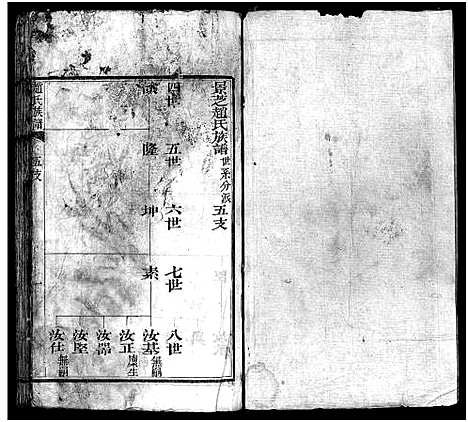 景芝趙氏族譜 世系分派 五支
四世 五世 六世 七世 八世
隆 坤 素 汝基 無嗣
汝正 廩生
汝霖
汝陞
汝仕 無嗣
趙氏族譜 五支